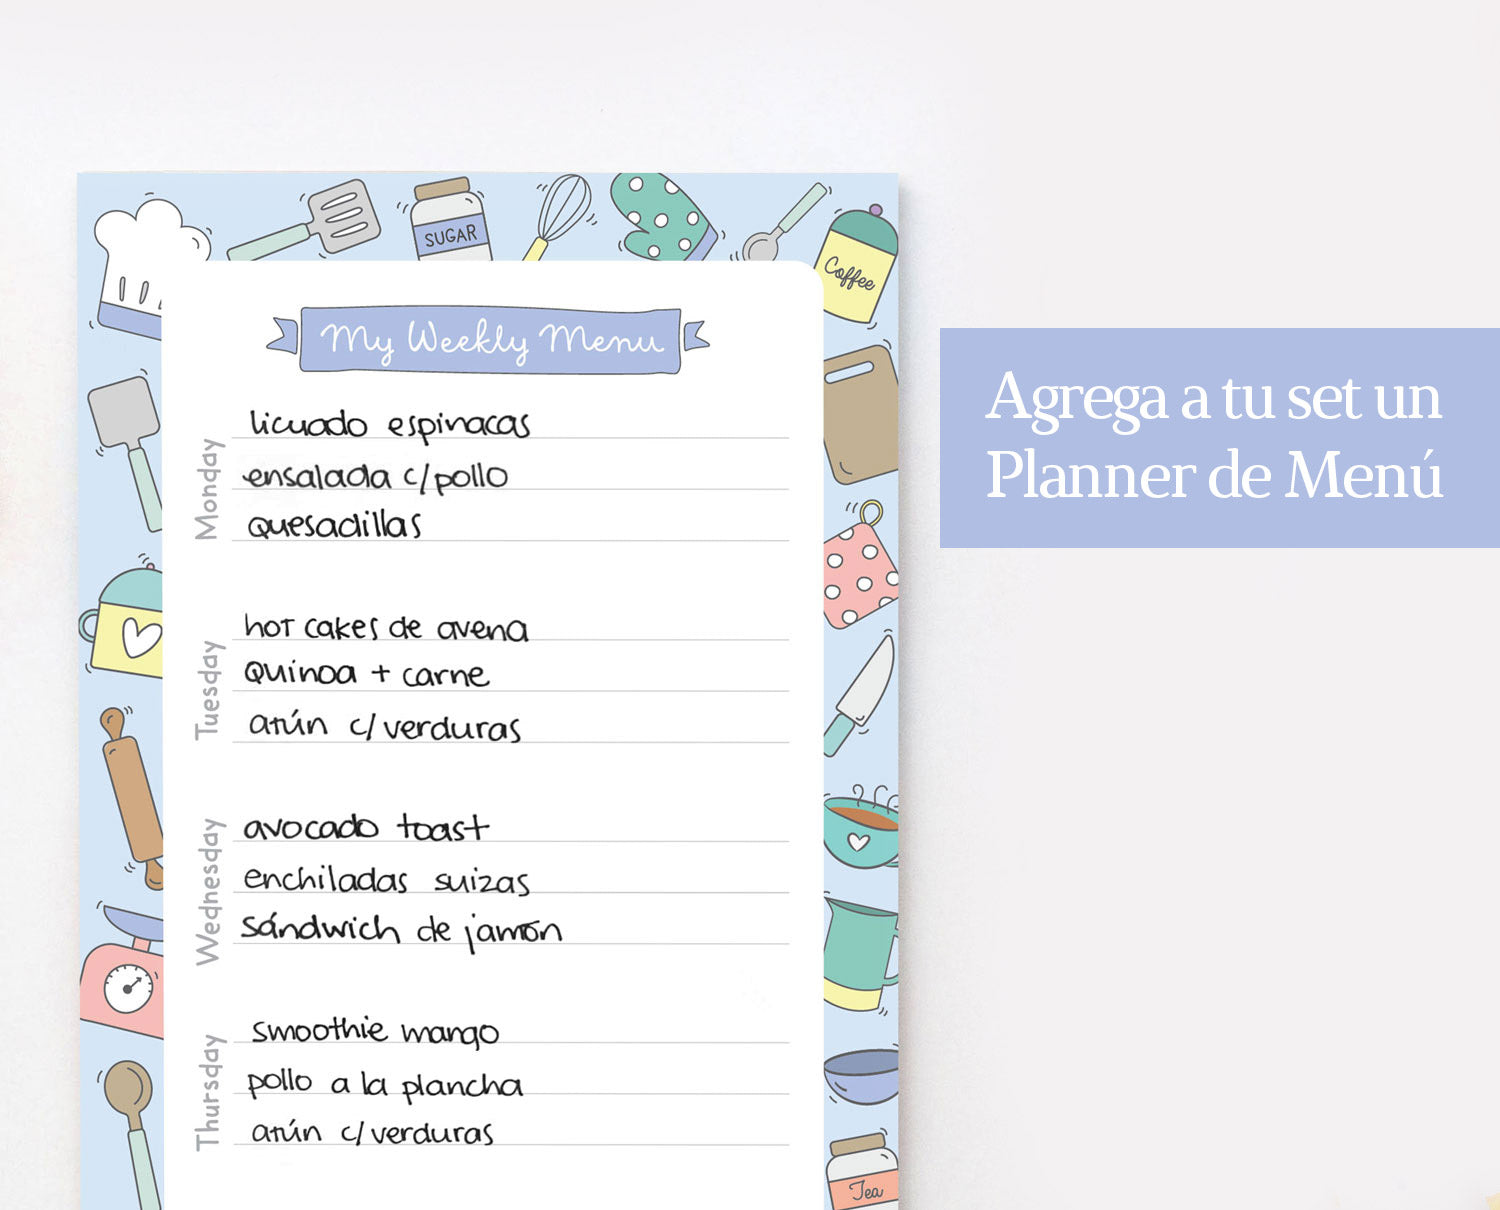 SUGAR
Coffee
My Weekly Menu
Monday
licuado espinacas
ensalada c/pollo
quesadillas
Tuesday
hot cakes de avena
quinoa + carne
atún c/verduras
Wednesday
avocado toast
enchiladas suizas
sándwich de jamón
Thursday
smoothie mango
pollo a la plancha
atún c/verduras
Tea
Agrega a tu set un
Planner de Menú